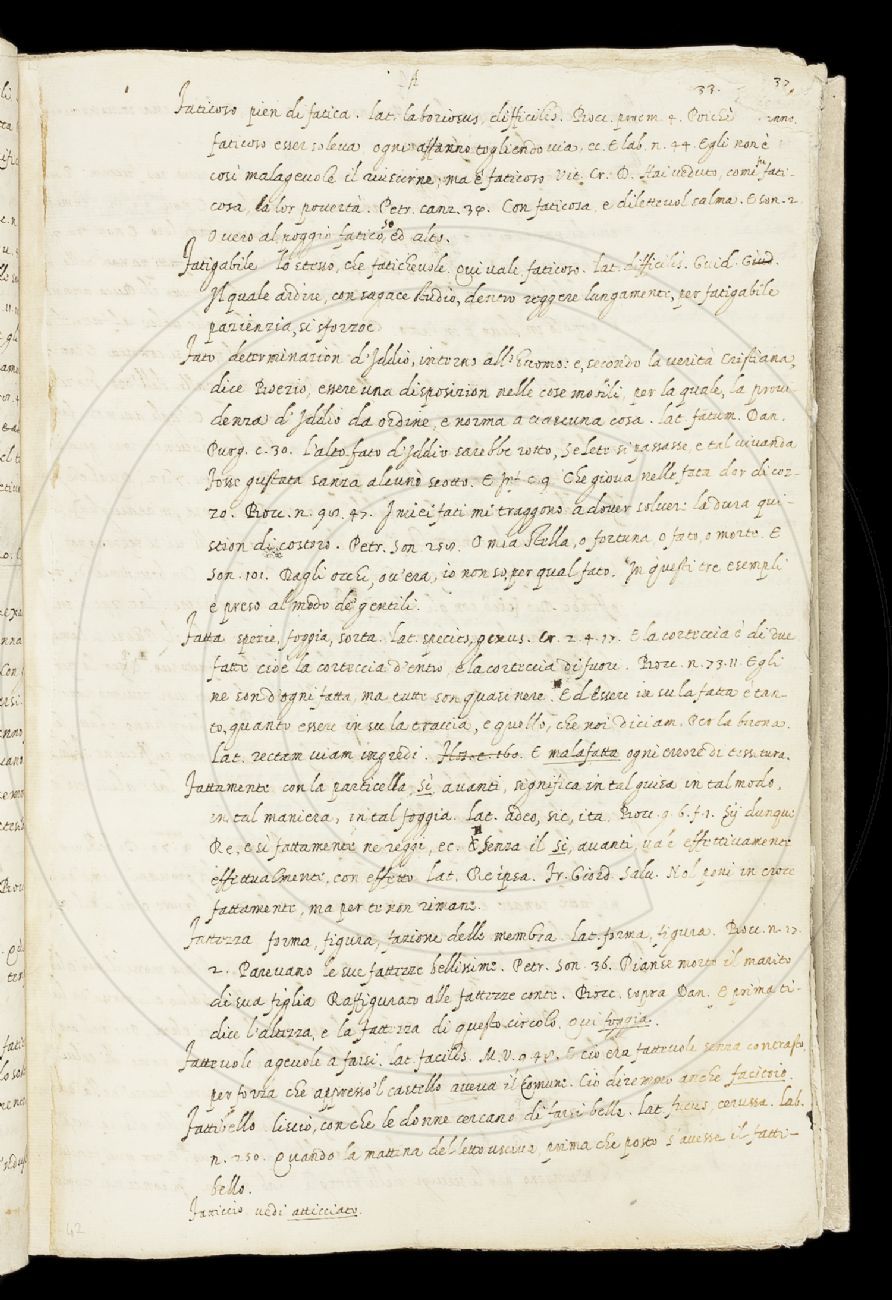 A
33. 37
Faticoso pien di fatica. lat. laboriosus, difficilis. Bocc. proem. 4. Poiche
faticoso esser soleva ogni affanno togliendo via, ec. E lab. n. 44. Egli non è
così malagevole il riuscirne, ma è faticoso. Vit. Cr. D. Hai veduto, com'è fati-
cosa, la lor povertà. Petr. canz. Con faticosa, e dilettevol salma. E son. 2
O vero al poggio faticoso, ed alto.
Fatigabile lo stesso, che fatichevole. Qui vale faticoso. lat. difficilis. Guid. Giud.
Il quale ardire, con sagace studio, dentro reggere lungamente, per fatigabile
pazienzia, si sforzoe
Fato determinazion d'Iddio, intorno all'huomo: e, secondo la verità cristiana,
dice Boezio, essere una disposizion nelle cose mobili, per la quale, la provi-
denza d'Iddio da ordine, e norma a ciascuna cosa. lat. fatum. Dan.
Purg. c. 30. L'alto fato d'Iddio sarebbe rotto, Se lete si passasse, e tal vivanda
Fosse gustata sanza alcuno scotto. E Inf. c. 9. Che giova nelle fata dar di coz-
zo. Bocc. n. 98. 47. I miei fati mi traggono a dover solver: la dura qui-
stion di costoro. Petr. Son O mia stella, o fortuna, o fato, o morte. E
son. 101. Dagli occhi, ov'era, io non so, per qual fato. In questi tre esempli
è preso al modo de gentili.
Fatta spezie, foggia, sorta. lat. species, genus. Cr. 2. 4. 17. E la corteccia è di due
fatte cioè la corteccia d'entro e la corteccia di fuore. Bocc. n. 73. 11. Egli
ne son d'ogni fatta, ma tutte son quasi nere. Ed Essere in su la fatta è tan-
to, quanto essere in su la traccia, e quello, che noi diciam. Per la buona.
Lat. rectam viam ingredi. E malafatta ogni errore di tessitura.
Fattamente con la particella, sì avanti, significa in tal guisa in tal modo,
in tal maniera, in tal foggia. Lat. adeo, sic, ita. Bocc. g. 6. f. 1. Sij dunque
Re, e sì fattamente ne reggi, ec. E senza il sì, avanti, va'è effettivamente
effettualmente, con effetto lat. Re ipsa. Fr. Giord. Salv. Nol poni in croce
fattamente, ma per te non rimane.
Fattezza forma, figura, fazione delle membra. Lat. forma, figura. Bocc. n. 17.
2. Parevano le sue fattezze bellissime. Petr. Son. 36. Pianse morto il marito
di sua figlia Raffigurato alle fattezze conte. Bocc. sopra Dan. E prima di-
dice l'altezza, e la fattezza di questo circolo, qui foggia.
Fattevole agevole a farsi. lat. facilis. M. V. 9. 48. E ciò era fattevole senza contrasto,
per forza che appresso'l castello aveva il Comune. Ciò diremmo anche facitoio.
Fattibello liscio, con che le donne cercano di farsi belle. lat. fucus, cerussa. Lab.
n. 250. Quando la mattina del letto usciva, prima che posto s'avesse il fatti-
bello.
Faticcio vedi atticciato.
42